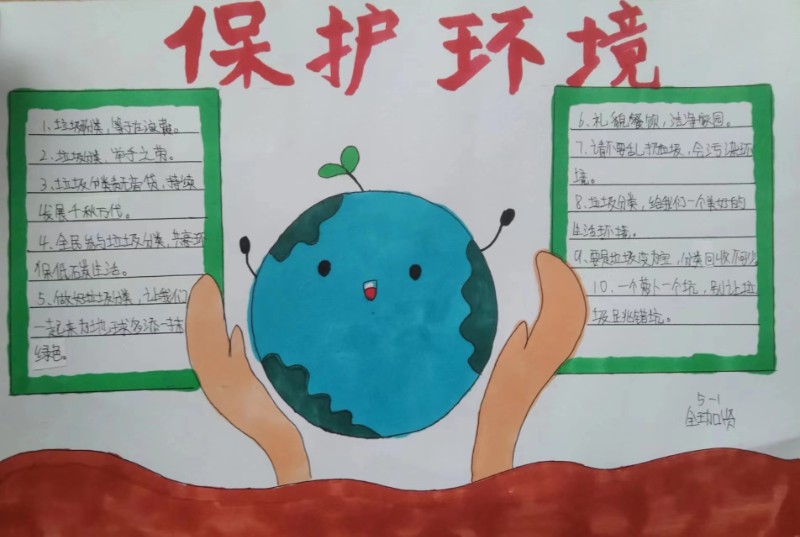 保护环境
1、垃圾分类，等于在淘黄。
2、垃圾分类，举手之劳。
3、垃圾分类 杂货，持续
发展千秋万代。
4、全民参与垃圾分类， 环
保低 生活。
5、做好垃圾分类，让我们
一起来为地球多添一抹
绿色。
6、礼貌餐饮，洁净校园。
7、请不要乱扔垃圾，会污染环
境。
8、垃圾分类，给我们一个美好的
生活环境。
9、要是垃圾变为宝，分类回收不可少
10、一个萝卜一个坑，别让垃
圾 跳错坑。
5-1